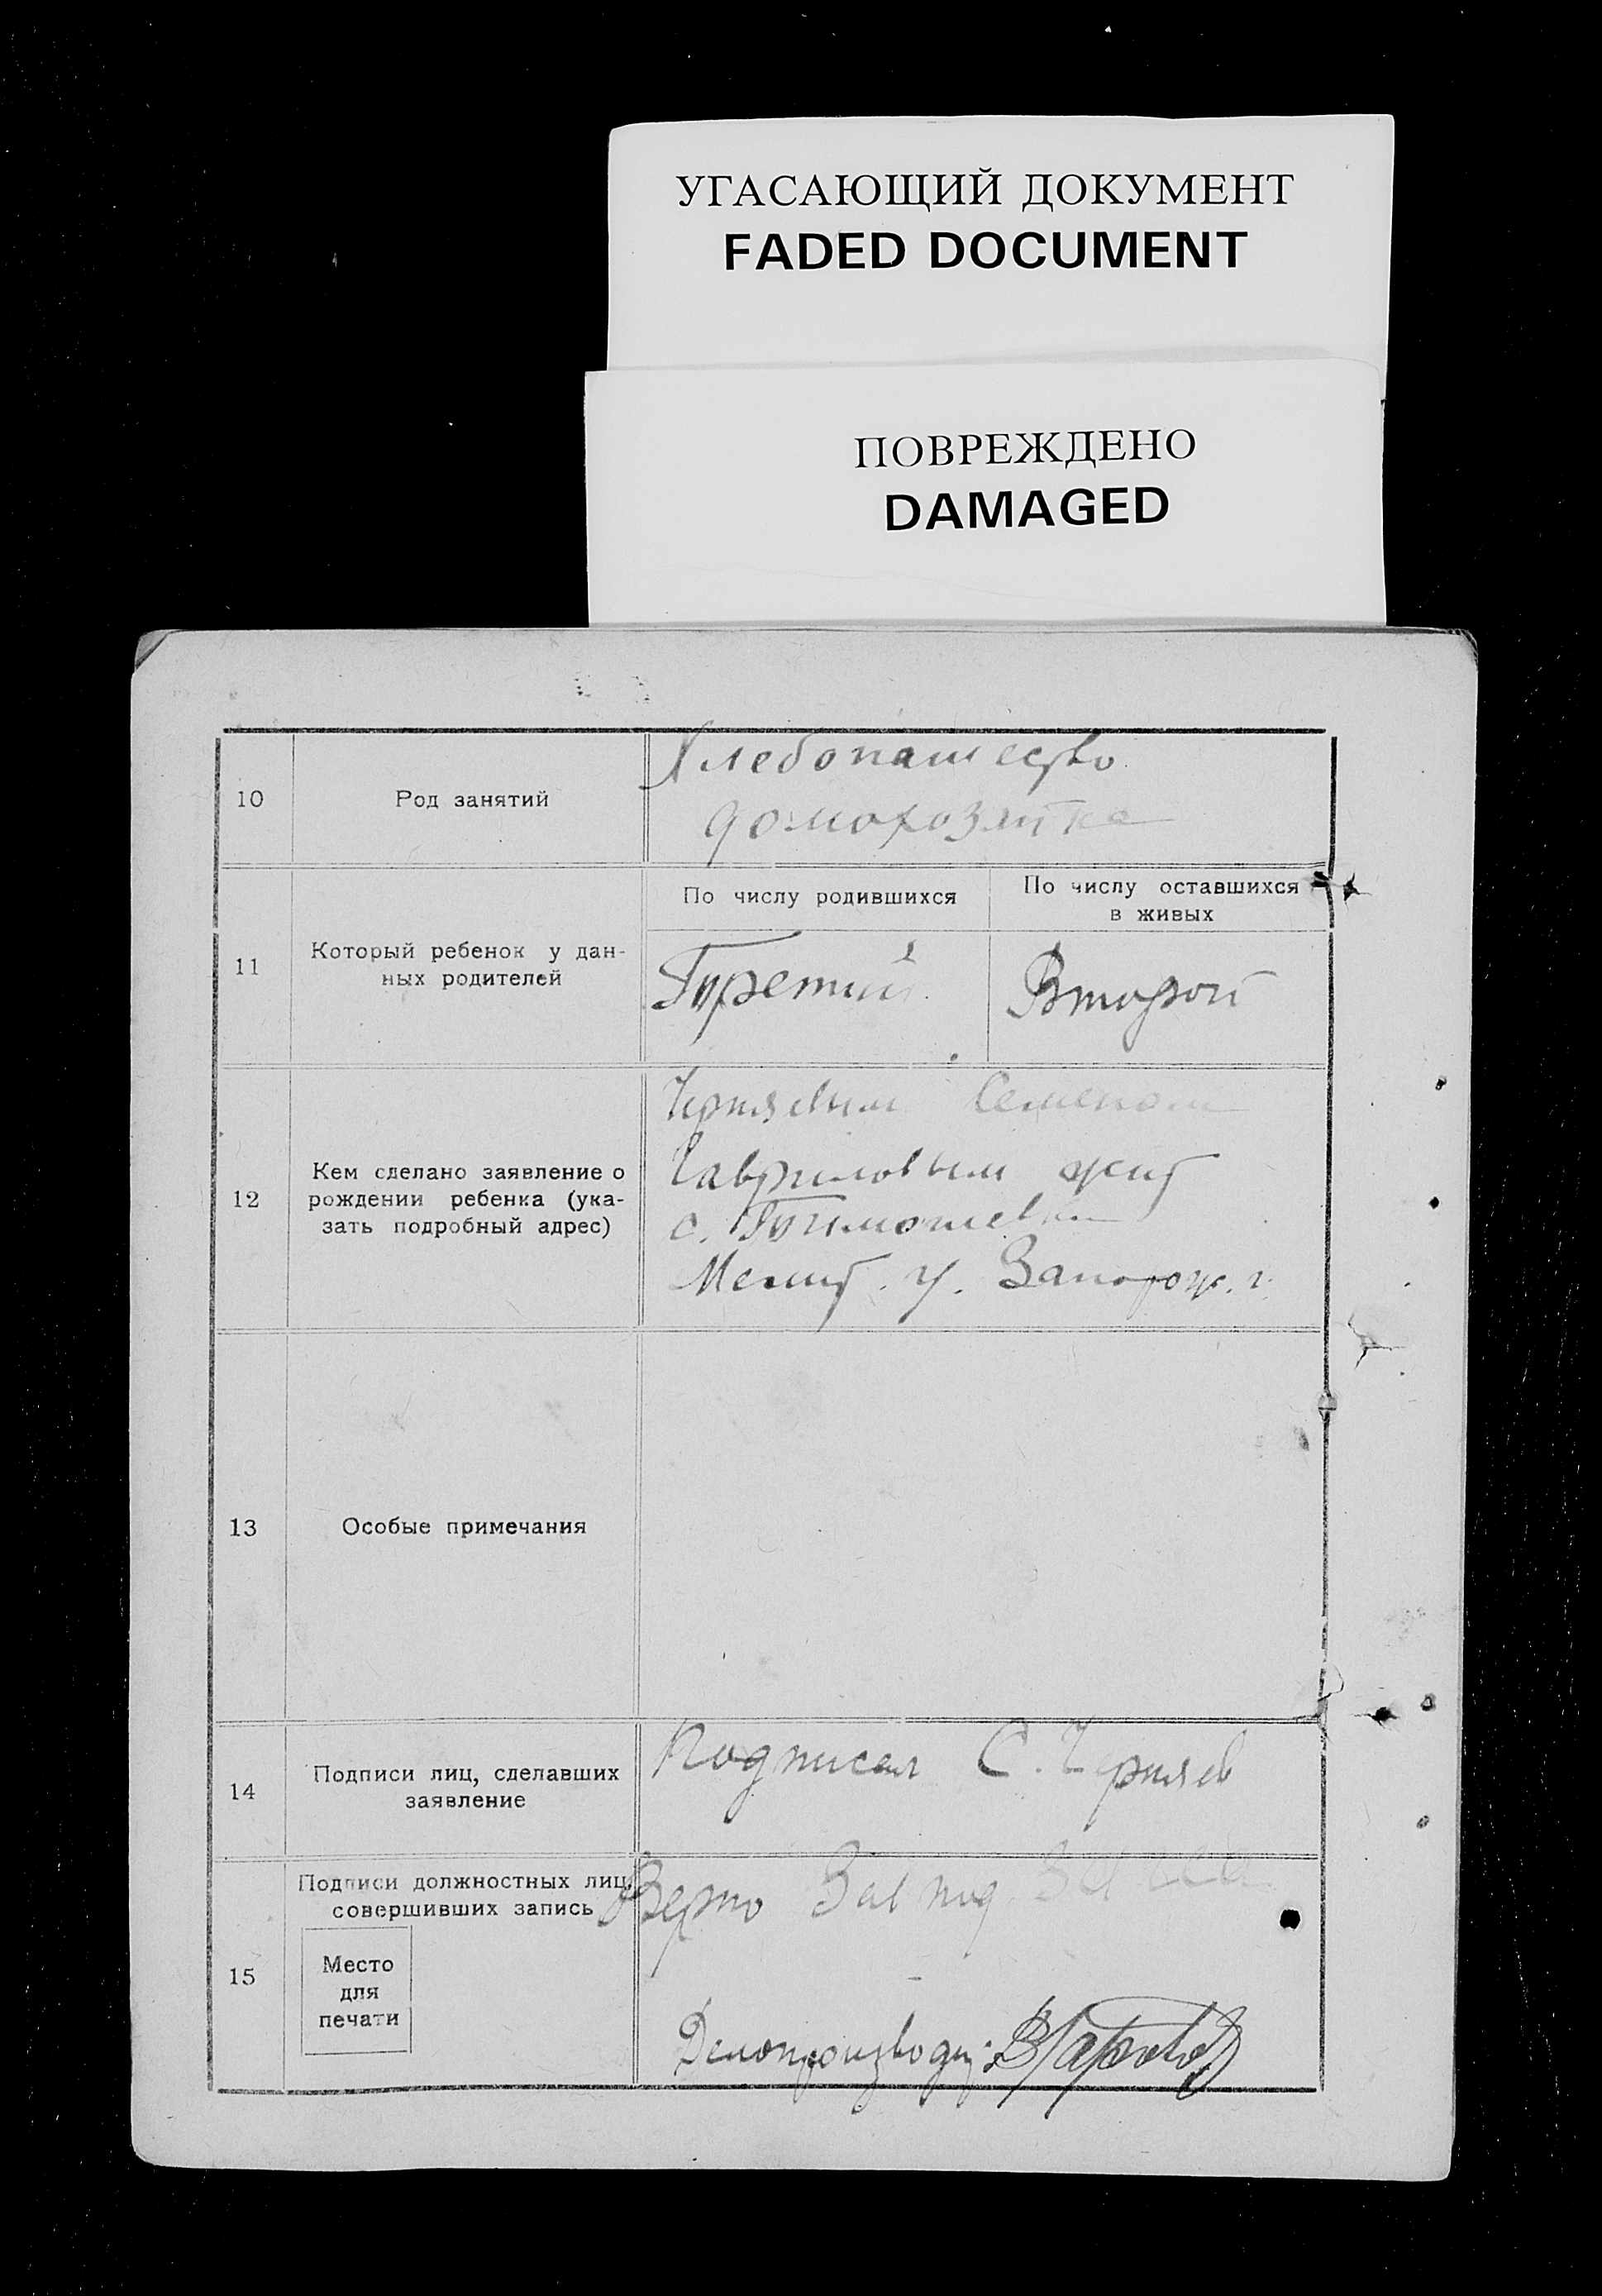 УГАСАЮЩИЙ ДОКУМЕНТ
FADED DOCUMENT
ПОВРЕЖДЕНО
DAMAGED
10
Род занятий
Хлебопашество
домохозяйка
11
Который ребенок у дан-
ных родителей
По числу родившихся
Третий
По числу оставшихся
в живых
Второй
12
Кем сделано заявление о
рождении ребенка (ука-
зать подробный адрес)
Черняевым Семеном
Гавриловым жит
с. Тимошевки
Мелит. у. Запорож. г.
13
Особые примечания
14
Подписи лиц, сделавших
заявление
Подписал С. Черняев
15
Подписи должностных лиц,
совершивших запись
Место
для
печати
Верно Зав под
Делопроизводи.